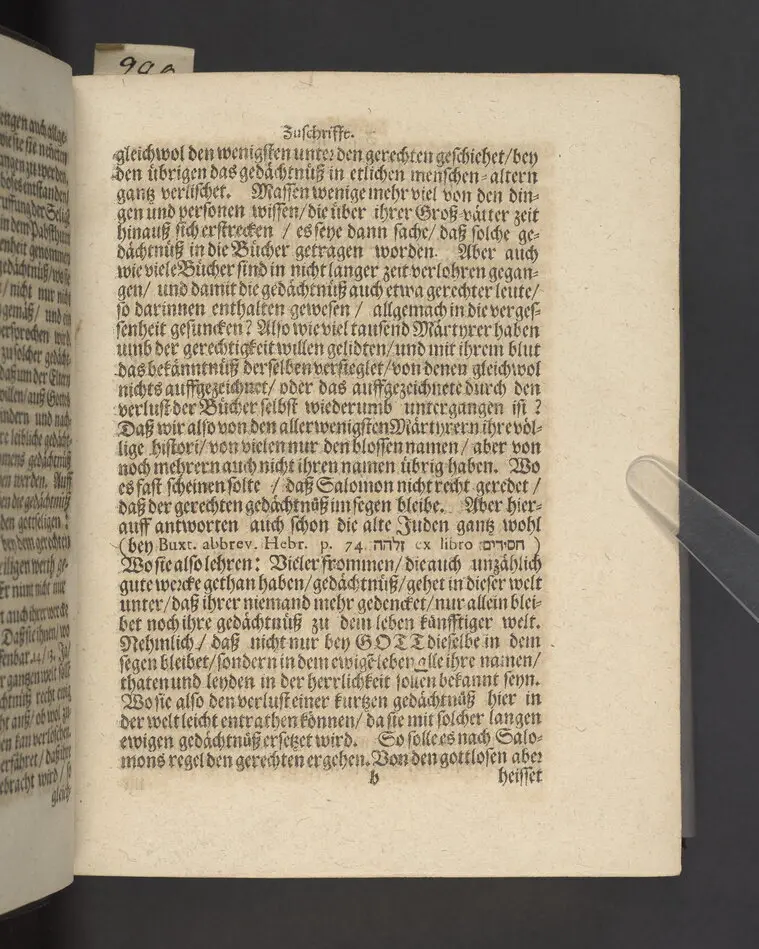 Zuschrifft.
gleichwol den wenigsten unter den gerechten geschiehet/bey
den übrigen das gedächtnüß in etlichen menschen-altern
gantz verlischet. Massen wenige mehr viel von den din-
gen und personen wissen/die über ihrer Groß-vätter zeit
hinauß sich erstrecken / es seye dann sache/ daß solche ge-
dächtnüß in die Bücher getragen worden. Aber auch
wie viele Bücher sind in nicht langer zeit verlohren gegan-
gen/ und damit die gedächtnüß auch etwa gerechter leute/
so darinnen enthalten gewesen / allgemach in die verges-
senheit gesuncken? Also wie viel tausend Märtyrer haben
umb der gerechtigkeit willen gelidten/und mit ihrem blut
das bekänntnüß derselben versieglet/von denen gleichwol
nichts auffgezeichnet/ oder das auffgezeichnete durch den
verlust der Bücher selbst wiederumb untergangen ist ?
Daß wir also von den allerwenigsten Märtyrern ihre völ-
lige histori/von vielen nur den blossen namen/ aber von
noch mehrern auch nicht ihren namen übrig haben. Wo
es fast scheinen solte / daß Salomon nicht recht geredet /
daß der gerechten gedächtnüß im segen bleibe. Aber hier-
auff antworten auch schon die alte Juden gantz wohl
(bey Buxt. abbrev. Hebr. p. 74. זלהה ex libro חסידים: )
Wo sie also lehren: Vieler frommen/die auch unzählich
gute wercke gethan haben/gedächtnüß/gehet in dieser welt
unter/daß ihrer niemand mehr gedencket/nur allein blei-
bet noch ihre gedächtnüß zu dem leben künfftiger welt.
Nehmlich / daß nicht nur bey GOTT dieselbe in dem
segen bleibet/sondern in dem ewigē leben alle ihre namen/
thaten und leyden in der herrlichkeit sollen bekannt seyn.
Wo sie also den verlust einer kurtzen gedächtnüß hier in
der welt leicht entrathen können/ da sie mit solcher langen
ewigen gedächtnüß ersetzet wird. So solle es nach Salo-
mons regel den gerechten ergehen. Von den gottlosen aber
b heisset